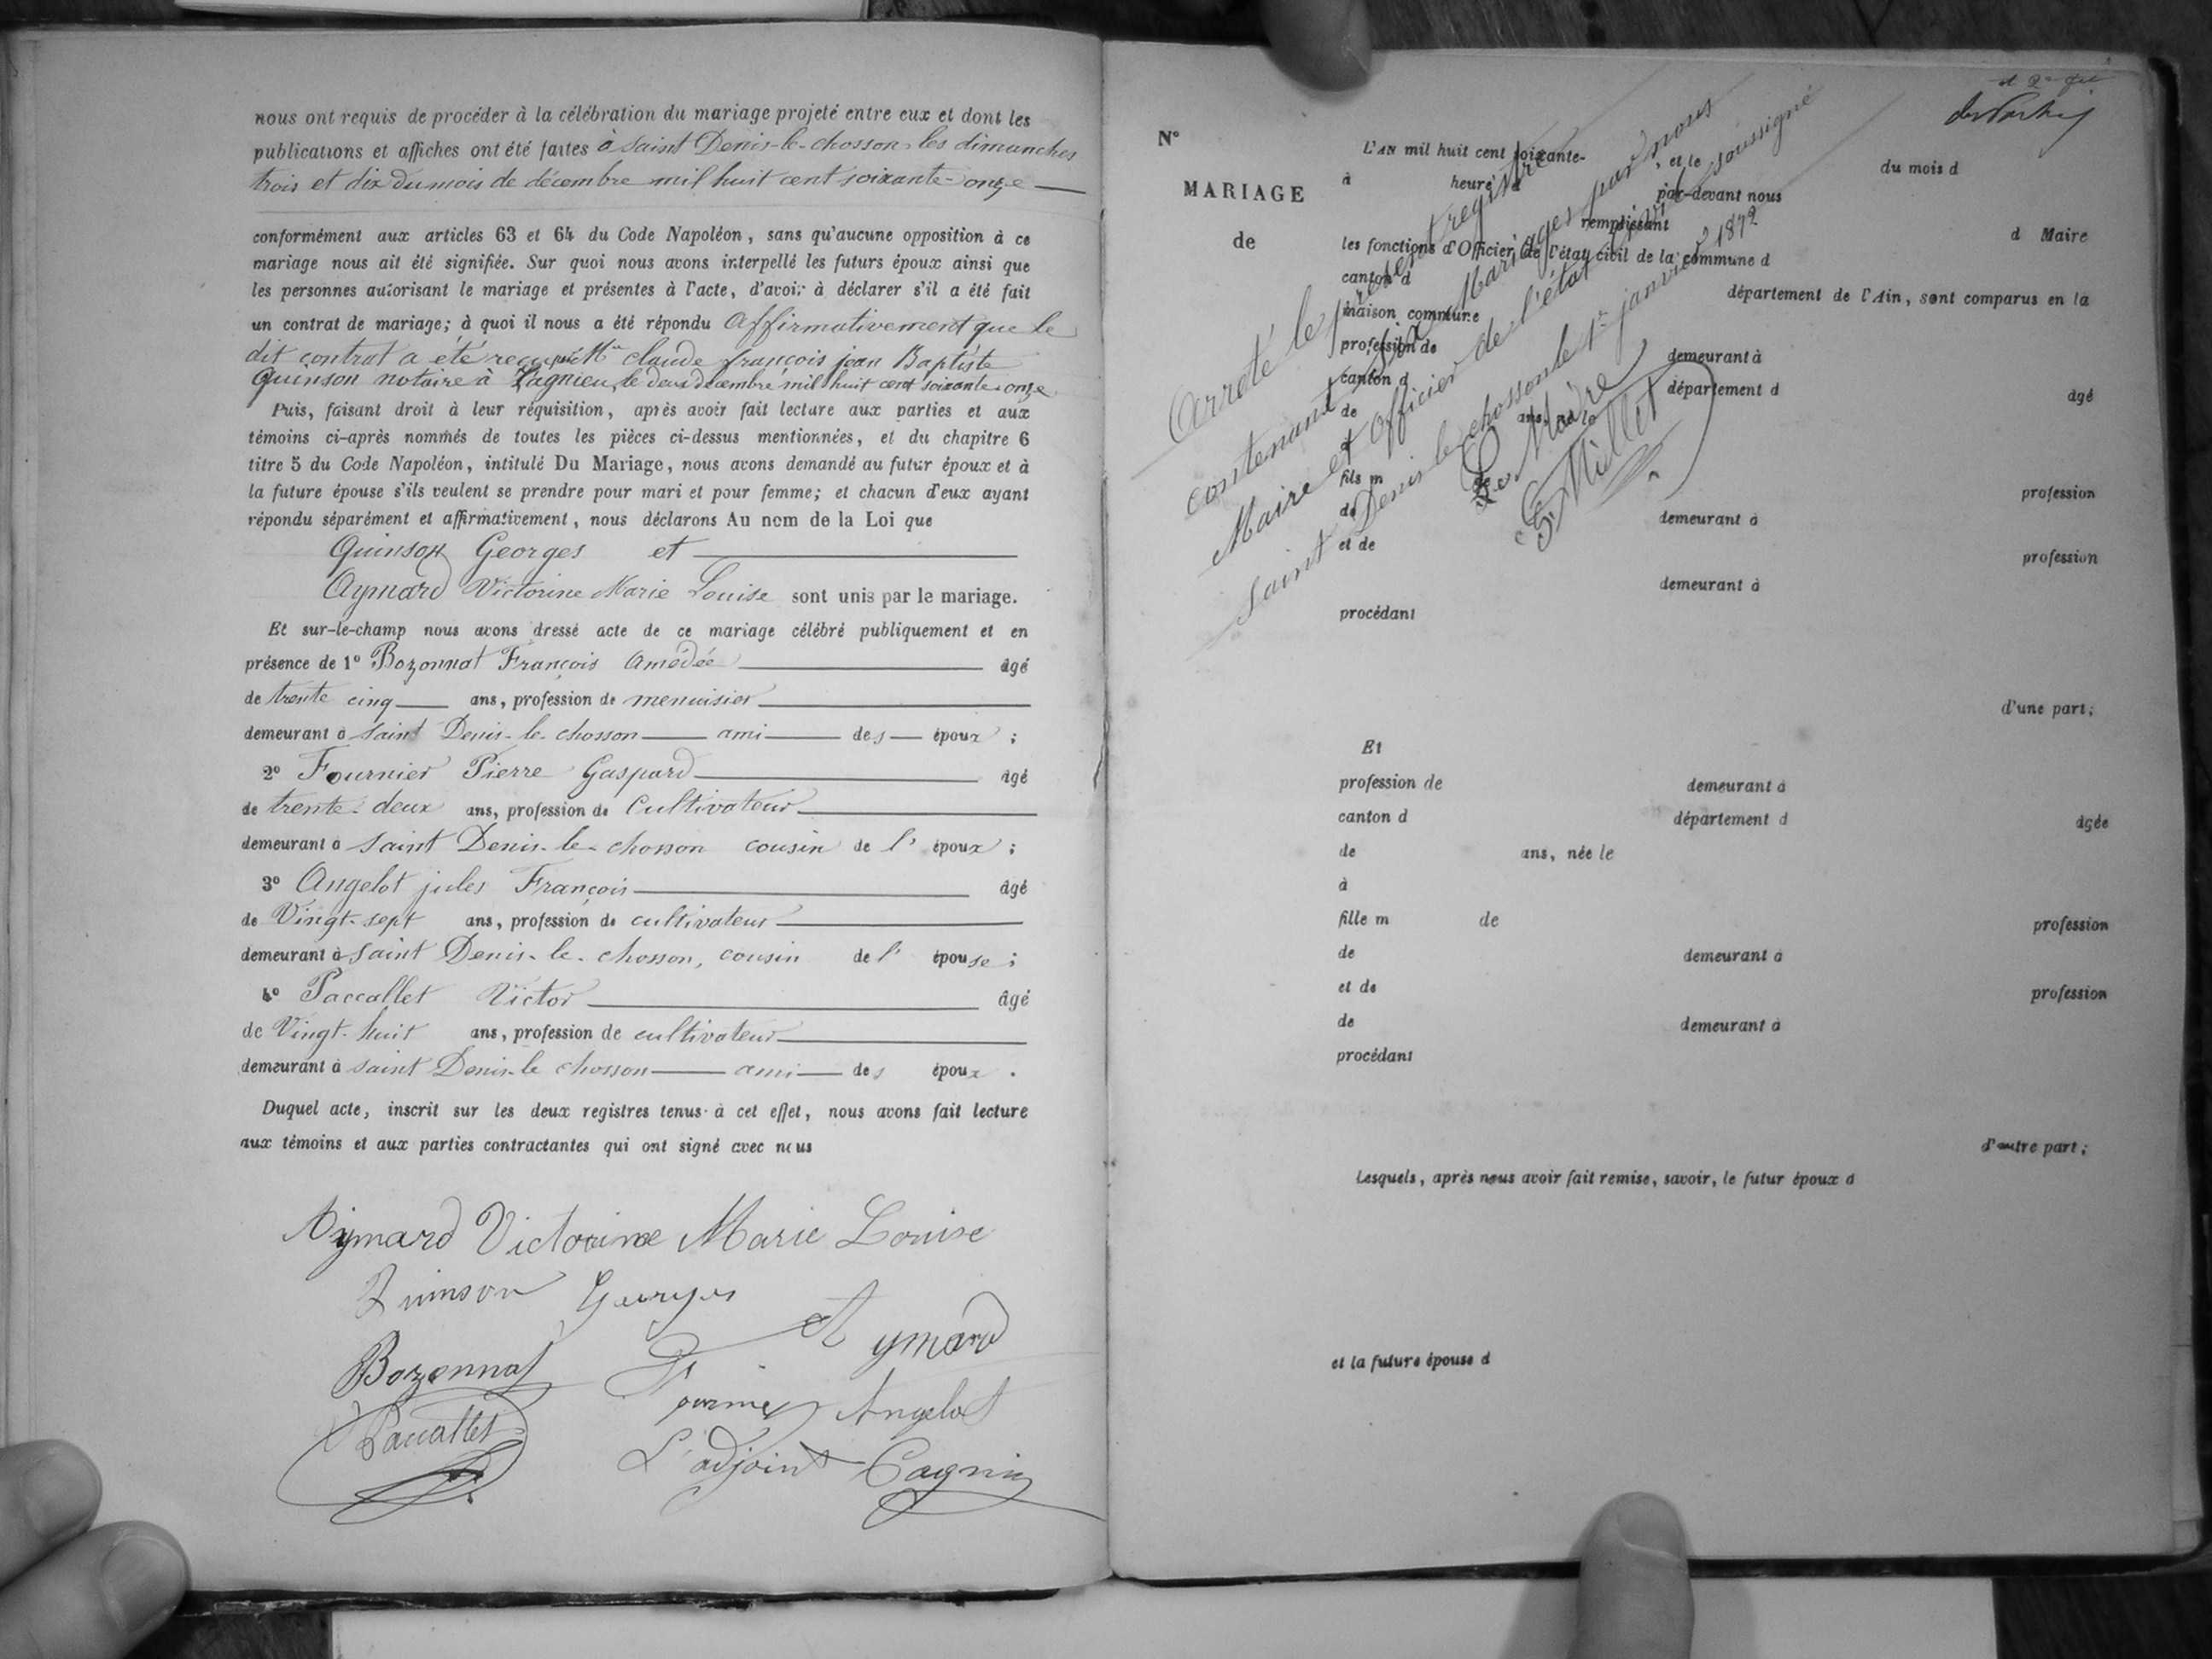 nous ont requis de procéder à la célébration du mariage projeté entre eux et dont les
publications et affiches ont été faites à saint Denis-le-chosson les dimanches
trois et dix du mois de décembre mil huit cent soixante-onze
conformément aux articles 63 et 64 du Code Napoléon, sans qu'aucune opposition à ce
mariage nous ait été signifiée. Sur quoi nous avons interpellé les futurs époux ainsi que
les personnes autorisant le mariage et présentes à l'acte, d'avoir à déclarer s'il a été fait
un contrat de mariage; à quoi il nous a été répondu affirmativement que le
dit contrat a été reçu par Me claude françois jean Baptiste
Quinson notaire à Lagnieu, le deux décembre mil huit cent soixante-onze
Puis, faisant droit à leur réquisition, après avoir fait lecture aux parties et aux
témoins ci-après nommés de toutes les pièces ci-dessus mentionnées, et du chapitre 6
titre 5 du Code Napoléon, intitulé Du Mariage, nous avons demandé au futur époux et à
la future épouse s'ils veulent se prendre pour mari et pour femme; et chacun d'eux ayant
répondu séparément et affirmativement, nous déclarons Au nom de la Loi que
Quinson Georges et
Aymard Victorine Marie Louise sont unis par le mariage.
Et sur-le-champ nous avons dressé acte de ce mariage célébré publiquement et en
présence de 1° Bozonnat François Amédée âgé
de trente cinq ans, profession de menuisier
demeurant à saint Denis-le-chosson ami des époux ;
2° Fournier Pierre Gaspard âgé
de trente-deux ans, profession de Cultivateur
demeurant à saint Denis-le-chosson cousin de l' époux ;
3° Angelot jules François âgé
de Vingt-sept ans, profession de cultivateur
demeurant à saint Denis-le-chosson, cousin de l' épouse ;
4° Paccallet Victor âgé
de Vingt-huit ans, profession de cultivateur
demeurant à saint Denis-le chosson ami des époux .
Duquel acte, inscrit sur les deux registres tenus à cet effet, nous avons fait lecture
aux témoins et aux parties contractantes qui ont signé avec nous
Aymard Victorine Marie Louise
Quinson Georges
Aymard
Bozonnat
Fournier Angelot
Paccallet
L'adjoint Cagnin
N°
MARIAGE
de
L'AN mil huit cent soixante- , et le du mois d
à heure d par-devant nous
remplissant
les fonctions d'Officier de l'état civil de la commune d d Maire
canton d département de l'Ain, sont comparus en la
maison commune
profession de demeurant à
canton d département d âgé
de ans, né le
à
fils m de profession
de demeurant à
et de profession
demeurant à
procédant
d'une part;
Arrêté le présent registre
contenant six Mariages par nous
Maire et Officier de l'état civil soussigné
Saint Denis le chosson le 1er janvier 1872
Le Maire
Millet
Et
profession de demeurant à
canton d département d âgée
de ans, née le
à
fille m de profession
de demeurant à
et de profession
de demeurant à
procédant
d'autre part;
Lesquels, après nous avoir fait remise, savoir, le futur époux d
et la future épouse d